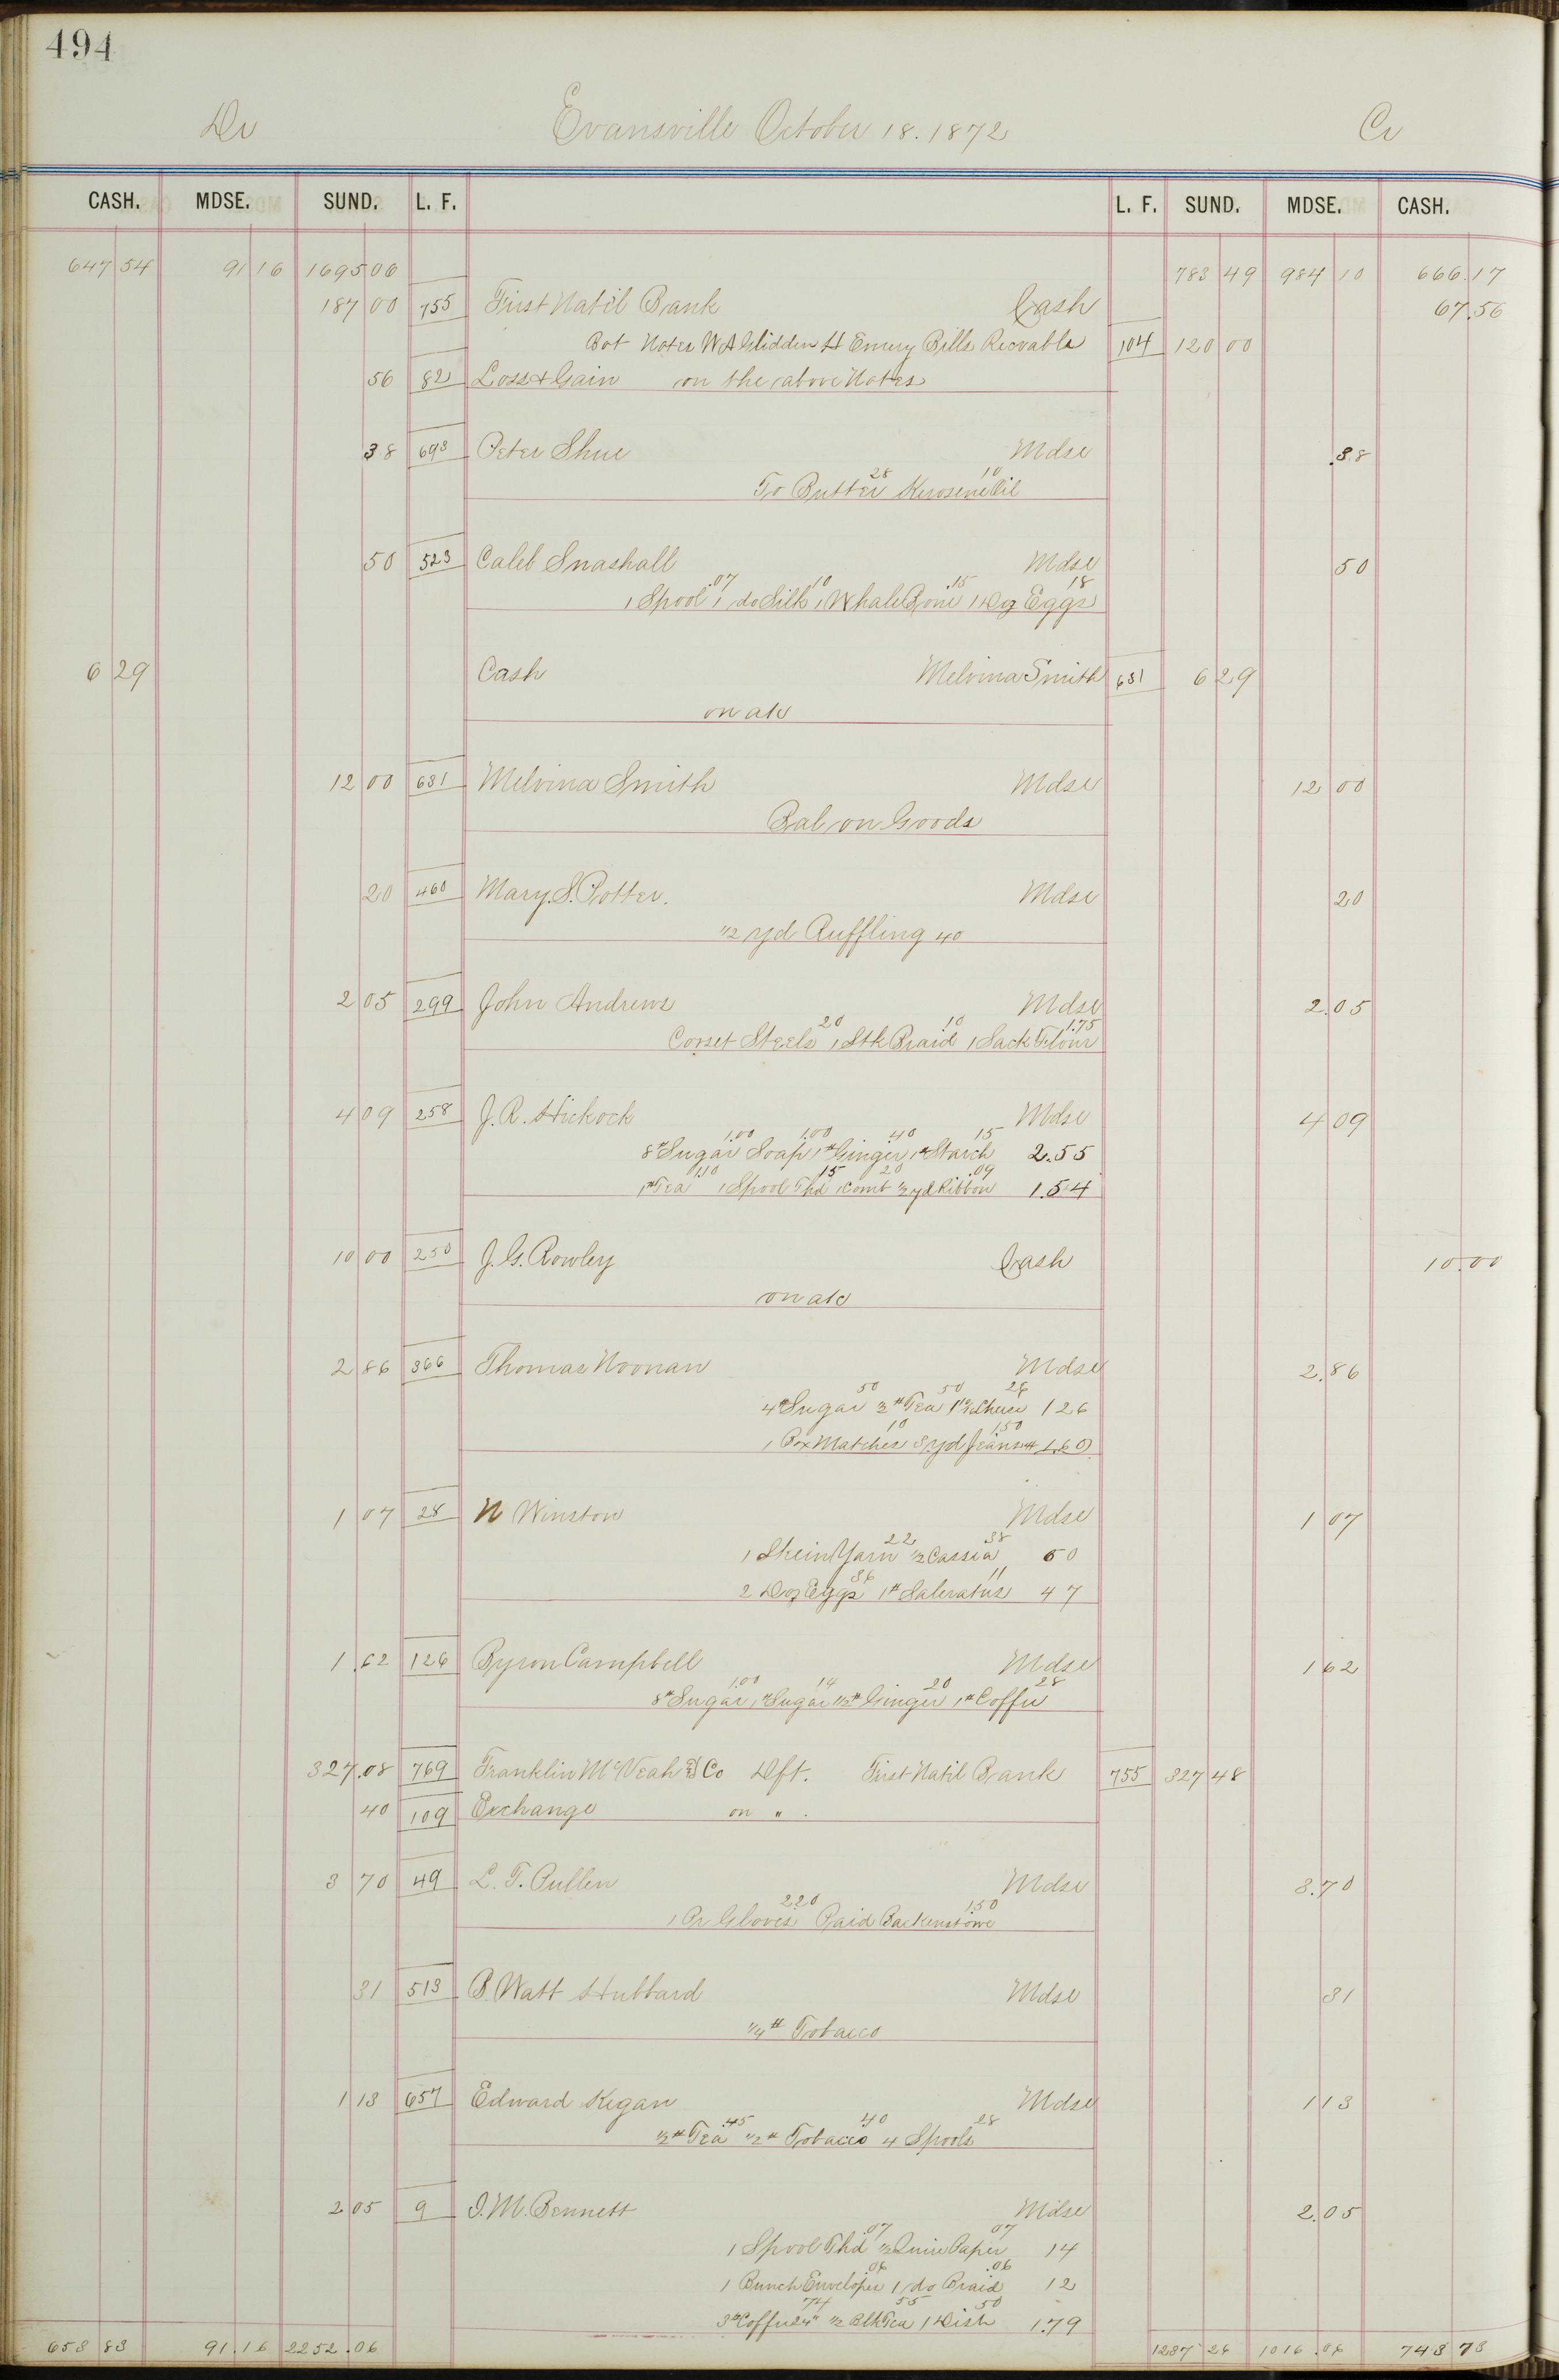 494
Dr Evansville October 18. 1872 Cr
CASH. MDSE. SUND. L. F. L. F. SUND. MDSE. CASH.
647 54 91 16 1695 06 783 49 984 10 666.17
187 00 755 First Nat'l Bank Cash 67.56
Bot Notes W A Glidden H Emery Bills Recvable 104 120 00
56 82 Loss & Gain on the above Notes
38 693 Peter Shue Mdse .38
28 10
To Butter Kerosene Oil
50 523 Caleb Snashall Mdse 50
.07 10 .15 18
1 Spool 1 do Silk 1 Whale Bone 1 Doz Eggs
6 29 Cash Melvina Smith 681 6 29
on a/c
12 00 681 Melvina Smith Mdse 12 00
Bal on Goods
20 460 Mary. S. Potter. Mdse 20
1/2 yd Ruffling 40
2 05 299 John Andrews Mdse 2.05
20 10 1.75
Corset Steels 1 Stk Braid 1 Sack Flour
4 09 258 J. R. Hickock Mdse 4 09
1.00 1.00 40 15
8# Sugar Soap 1# Ginger 1# Starch 2.55
1.10 15 20 .09
1# Tea 1 Spool Thd 1 Comb 1/2 yd Ribbon 1.54
10 00 250 J. G. Rowley Cash 10.00
on a/c
2 86 366 Thomas Noonan Mdse 2.86
50 50 26
4# Sugar 1/2# Tea 1 1/2 Cheese 1 26
10 1.50
1 Box Matches 3 yd Jeans 1.60
1 07 28 N Winston Mdse 1 07
22 38
1 Skein Yarn 1/2 Cassia 60
36 11
2 Doz Eggs 1# Saleratus 47
1.62 126 Byron Campbell Mdse 1 62
1.00 14 20 28
8# Sugar 1# Sugar 1/2# Ginger 1# Coffee
327.08 769 Franklin McVeah & Co Dft. First Nat'l Bank 755 327 48
40 109 Exchange on " .
3 70 49 L. T. Pullen Mdse 3.70
2.20 1.50
1 Pr Gloves Paid Backenstowe
31 513 B. Watt Hubbard Mdse 31
1/4# Tobacco
1 13 657 Edward Kegan Mdse 1 13
.45 .40 28
1/2# Tea 1/2# Tobacco 4 Spools
2 05 9 I. M. Bennett Mdse 2.05
.07 07
1 Spool Thd 1/2 Quire Paper 14
06 .06
1 Bunch Envelopes 1 do Braid 12
74 55 50
3# Coffee 24" 1/2 Blk Tea 1 Dish 1.79
653 83 91.16 2252.06 1237 26 1016.06 743 73